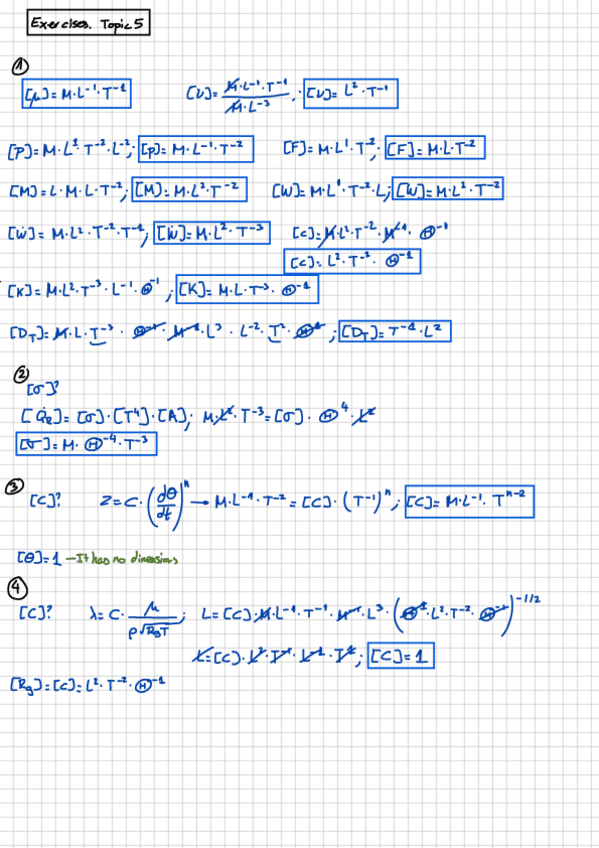 Exercises. Topic 5
①
[μ]= M·L⁻¹·T⁻¹ [ν]= M·L⁻¹·T⁻¹ / M·L⁻³ ; [ν]= L²·T⁻¹
[P]= M·L¹·T⁻²·L⁻²; [p]= M·L⁻¹·T⁻² [F]= M·L¹·T⁻²; [F]= M·L·T⁻²
[M]= L·M·L·T⁻²; [M]= M·L²·T⁻² [W]= M·L¹·T⁻²·L; [W]= M·L²·T⁻²
[Ẇ]= M·L²·T⁻²·T⁻¹; [Ẇ]= M·L²·T⁻³ [c]= M·L²·T⁻²·M⁻¹·Θ⁻¹
[c]= L²·T⁻²·Θ⁻¹
[K]= M·L²·T⁻³·L⁻¹·Θ⁻¹; [K]= M·L·T⁻³·Θ⁻¹
[D_T]= M·L·T⁻³·Θ⁻¹·M⁻¹·L³·L⁻²·T²·Θ¹; [D_T]= T⁻¹·L²
②
[σ]?
[Q̇_R]= [σ]·[T⁴]·[A]; M·L²·T⁻³=[σ]·Θ⁴·L²
[σ]= M·Θ⁻⁴·T⁻³
③ [C]? Z= C·(dθ/dt)ⁿ → M·L⁻¹·T⁻² = [C]·(T⁻¹)ⁿ; [C]= M·L⁻¹·Tⁿ⁻²
[θ]=1 – It has no dimensions
④
[C]? λ= C· μ / ρ√RgT ; L=[C]·M·L⁻¹·T⁻¹·M⁻¹·L³·(Θ¹·L²·T⁻²·Θ⁻¹)⁻¹/²
L=[C]·L²·T⁻¹·L⁻¹·T¹; [C]=1
[Rg]=[c]= L²·T⁻²·Θ⁻¹